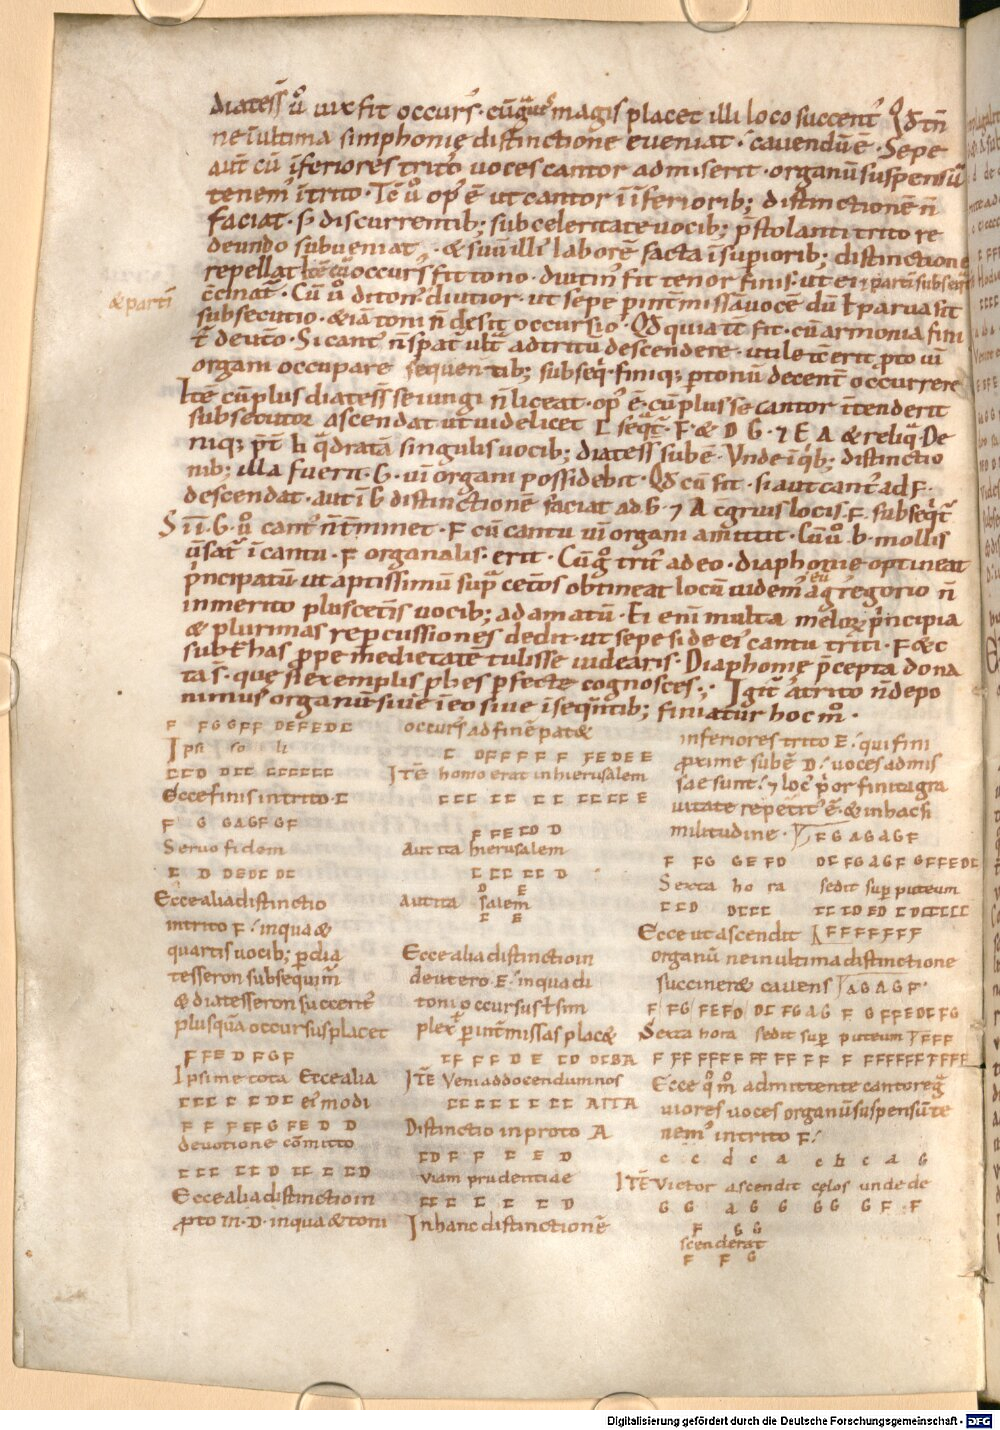 diatess̄ ů vix fit occurs᷒ · cū quis magis placet illi loco succent᷒ Qd tn̄
ne ī ultima simphonie distinctione eveniat · cavendū ē · Sepe
aut̄ cū īferiores trito voces cantor admiserit · organū suspensū
tenem᷒ ī trito · Tc̄ ů op᷒ ē ut cantor ī īferiorib; distinctionē n̄
faciat · s; discurrentib; sub celeritate vocib; p̄stolanti trito re
deundo subveniat · & suū illi laborē facta ī sup̄iorib; distinctione
repellat Itē cū occurs᷒ fit tono · diutin᷒ fit tenor finis · ut ei ⁊ parti subseq̄t᷒
& parti
c̄cinat᷒ · Cū ů diton᷒ diutior · ut sepe p̄ int̄missā vocē dū ł parva sit
subsecutio · & iā toni n̄ desit occursio · Qd quia tc̄ fit · cū armonia fini
t᷒ deut̄o · Si cant᷒ n̄ sp̄at᷒ ult᷒ ad tritū descendere · utile tc̄ erit p̄to vī
organi occupare sequentib; subseq · finiq; p̄ tonū decent᷒ occurrere
Itē cū plus diatess̄ seiungi n̄ liceat · op᷒ ē · cū plus se cantor ītenderit
subsecutor ascendat ut videlicet C seq̄t᷒ · F · & D G · ⁊ E A & reliq̄ · De
niq; p̄t᷒ ♮ q̄dratā singulis vocib; diatess̄ subē · Unde ī qb; distinctio
nib; illa fuerit · G · vī organi possidebit · Qd cū fit · si aut cant᷒ ad F ·
descendat · aut ī G distinctionē faciat ad · G · ⁊ A c̄gruis locis · F · subseq̄t᷒
Si ī · G · ů cant᷒ n̄ t̄minet · F cū cantu vī organi amittit · Cū ů · b · mollis
v̄sat᷒ ī cantu · F organalis · erit · Cū g᷒ trit᷒ adeo · diaphonie optineat
p̄ncipatū ut aptissimū sup̄ cet̄os obtineat locū videm᷒ eū a gregorio n̄
inmerito plus cet̄is vocib; adamatū · Ei eni multa melorꝝ p̄ncipia
& plurimas repercussiones dedit · ut sepe si de ei᷒ cantu triti · F & c
subt᷒has prope medietatē tulisse iudicaris · Diaphonie p̄cepta dona
ta s̄ · que si exemplis p̄bes perfecte cognosces · Igit᷒ a trito n̄ depo
nimus organū sive ī eo sive ī seq̄ntib; finiatur hoc m̊ ·
F FGGFF DEFEDC
Ipsi so li
CCD DCC CCCCCC
Ecce finis in trito · C
F G GAGFGF
Servo fidem
C D DEDC DC
Ecce alia distinctio
in trito F · in qua &
quartis vocib; p̄ dia
tesseron subsequim᷒
& diatesseron succent᷒
plusquā occursus placet
FFE D FGF
Ipsi me tota Ecce alia
CCC C C DC ei᷒ modi
F F FEFG FE D D
devotione cōmitto
CCC CC D CC C CD
Ecce alia distinctio in
p̄to m · D · in qua & toni
occurs᷒ ad finē pat&
C DFFFF F FEDE E
ITĒ homo erat in hierusalem
CCC CC CC CCCCC E
F FECD D
Aut ita hierusalem
C CCCC D
D E
aut ita salem
C E
Ecce alia distinctio in
deutero · E · in qua di
toni occursus ł sim
plex p̄ int̄missas plac&
CF F F D E CD DCBA
ITĒ Veni ad docendum nos
CCC C C C CC ACCA
Distinctio in proto A
FD F F C E D
viam prudentiae
CC C C C C D
In hanc distinctionē
inferiores trito E · qui fini
proxime subē D · voces admis
sae sunt · ⁊ loc᷒ p̄or finit᷒ a gra
vitate repetit᷒ ē · & in hac si
militudine · F G A G A G F
F FG GE FD DC FG AGF GFFEDC
Sexta ho ra sedit sup̄ puteum
CCD DCCC CC CD ED CDCCCC
Ecce ut ascendit F F F F F F F
organū ne in ultima distinctione
succiner& cavens A G A G F
F FG FEFD DC FG AG F G FFEDC FG
Sexta hora sedit sup̄ puteum FFFF
F FF FFFF FF FF F F FFFFFF FFFF
Ecce q̊m̊ admittente cantore g᷒
viores voces organū suspensū te
nem᷒ in trito F
c c d c a c b c a G
ITĒ Victor ascendit celos unde de
G G a G G GG G F F
F G G
scenderat
F F G
Digitalisierung gefördert durch die Deutsche Forschungsgemeinschaft - DFG